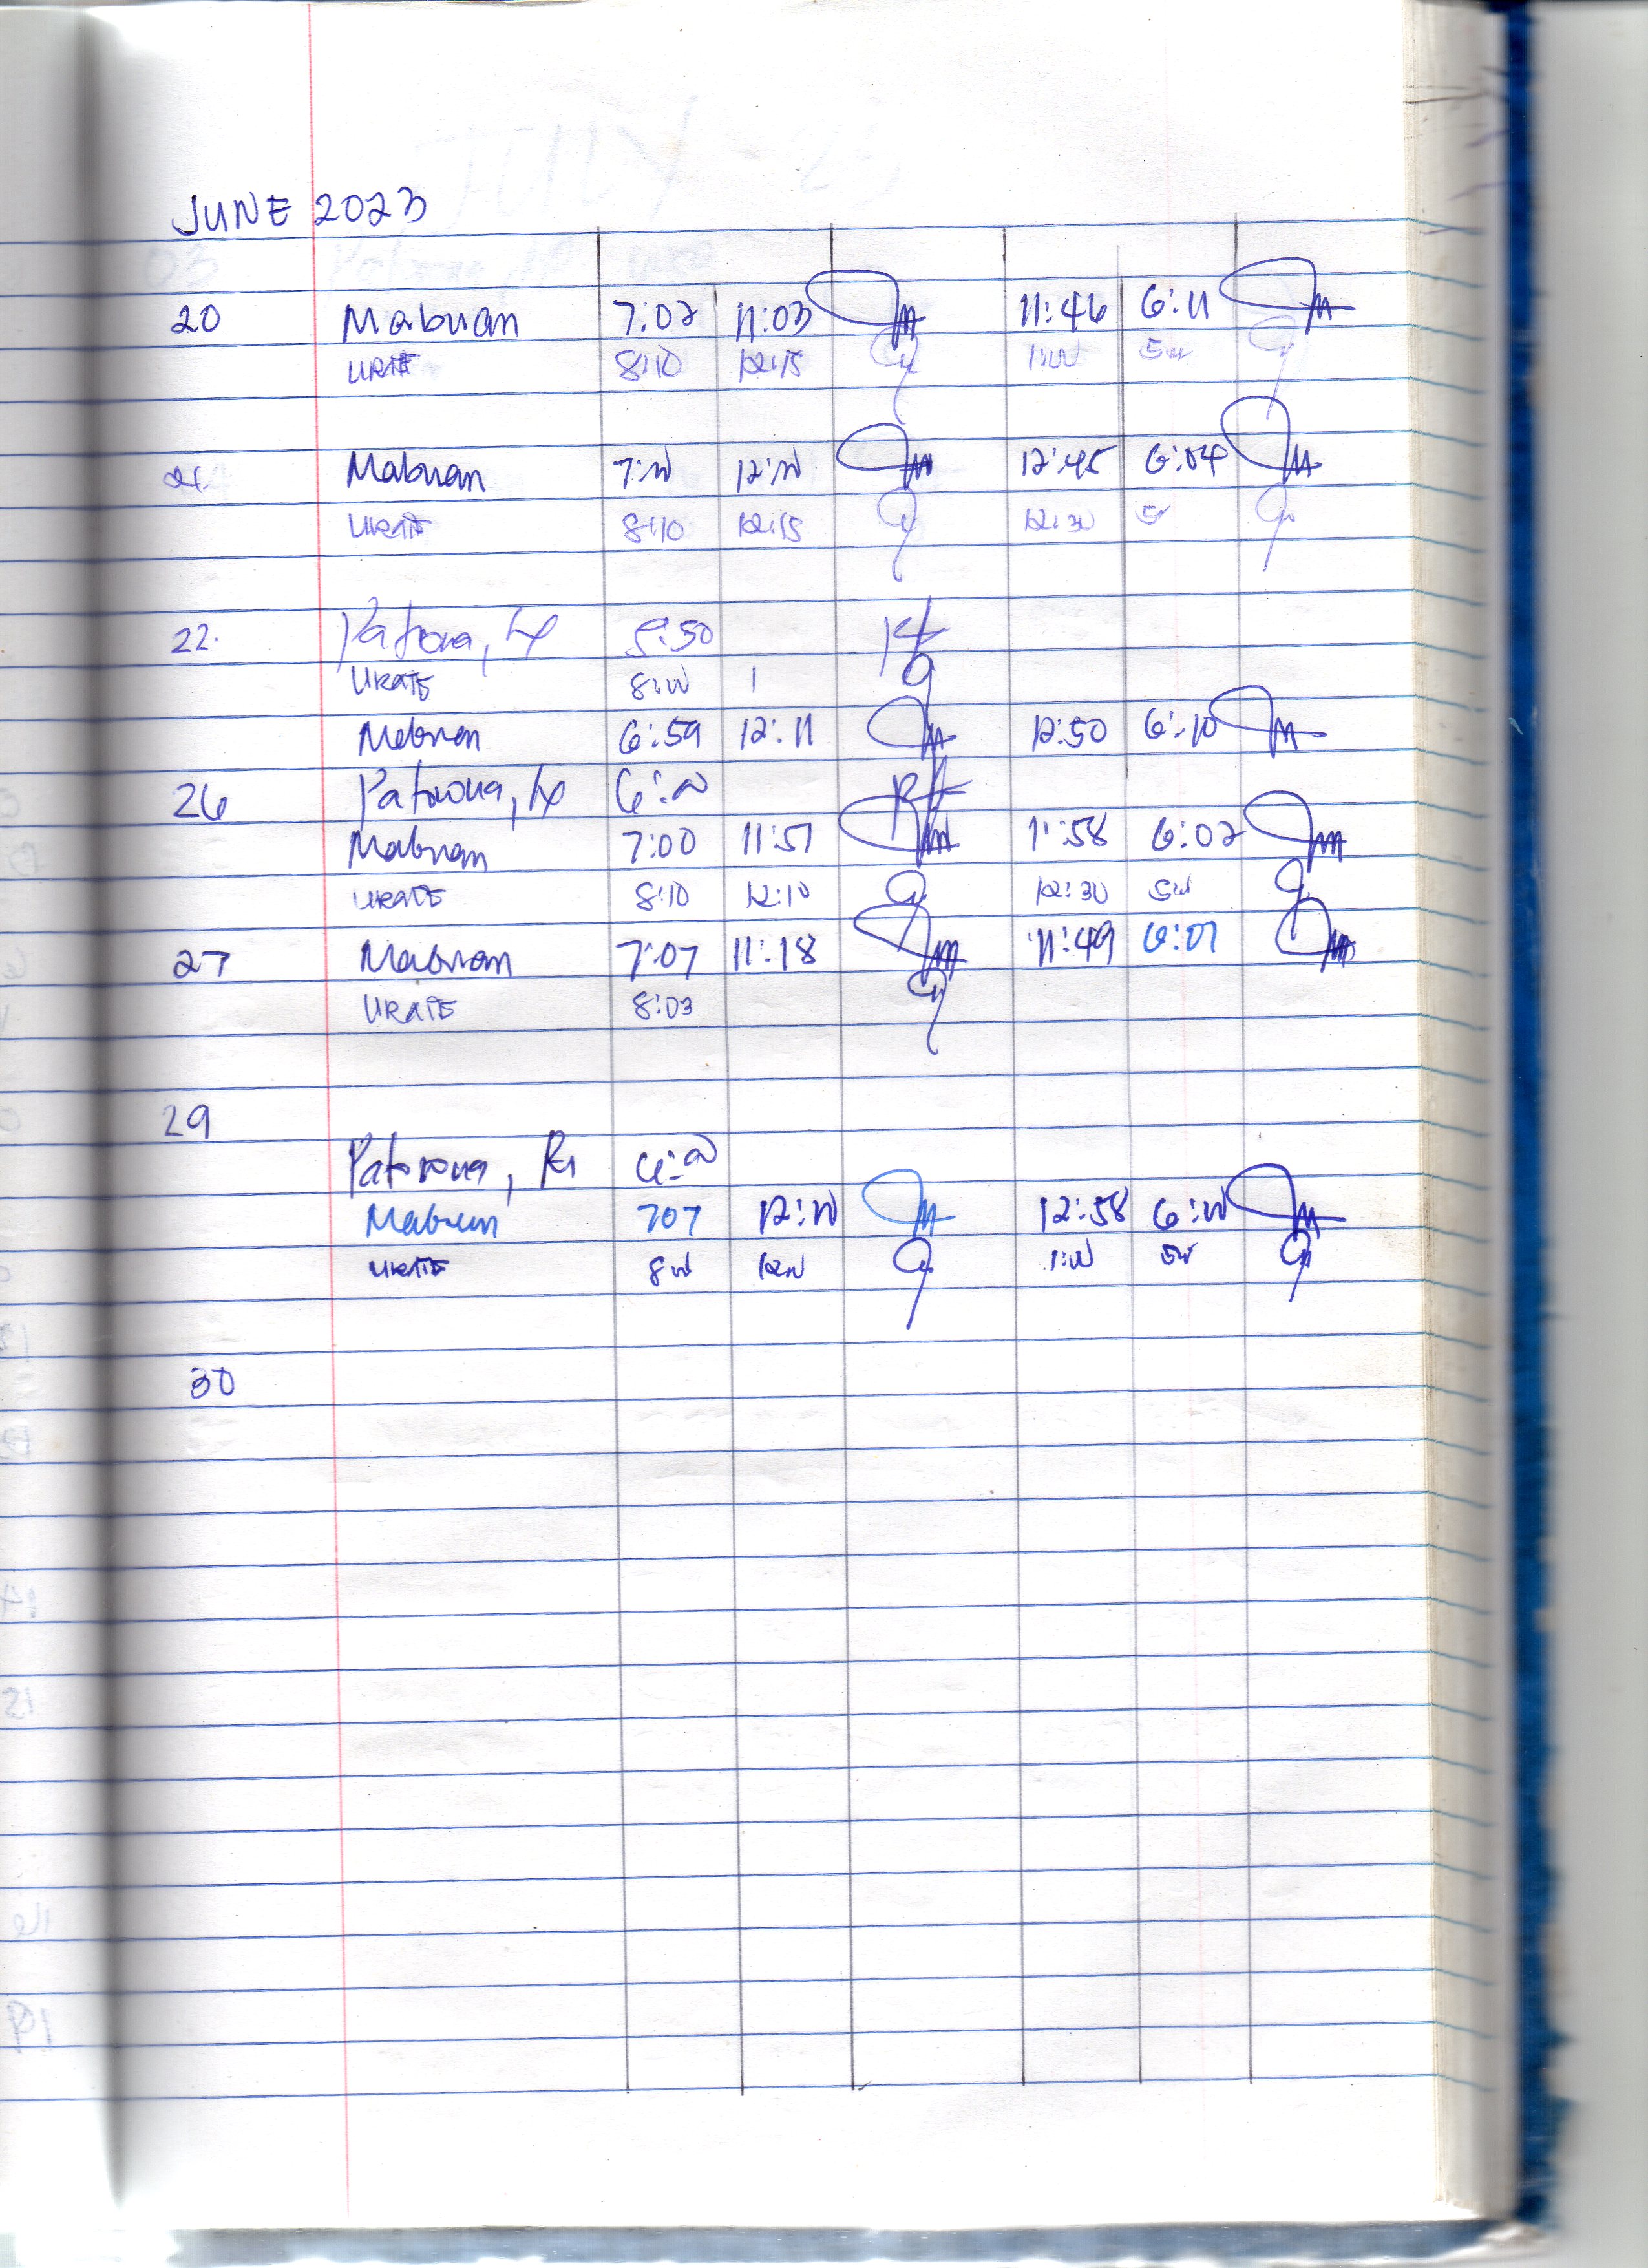 JUNE 2023
20 Mabuan 7:02 11:03 11:46 6:11
URATE 8:10 12:15 1:00 5:00
21. Mabuan 7:00 12:00 12:45 6:04
URATE 8:10 12:15 12:30 5:00
22. Patrona, 5:50
URATE 8:00 1
Mabuan 6:59 12:11 12:50 6:10
26 Patrona, 6:00
Mabuan 7:00 11:51 11:58 6:02
URATE 8:10 12:10 12:30 5:00
27 Mabuan 7:07 11:18 11:49 6:01
URATE 8:03
29
Patrona, Ri 6:00
Mabuan 707 12:00 12:58 6:00
URATE 800 1200 1:00 500
30